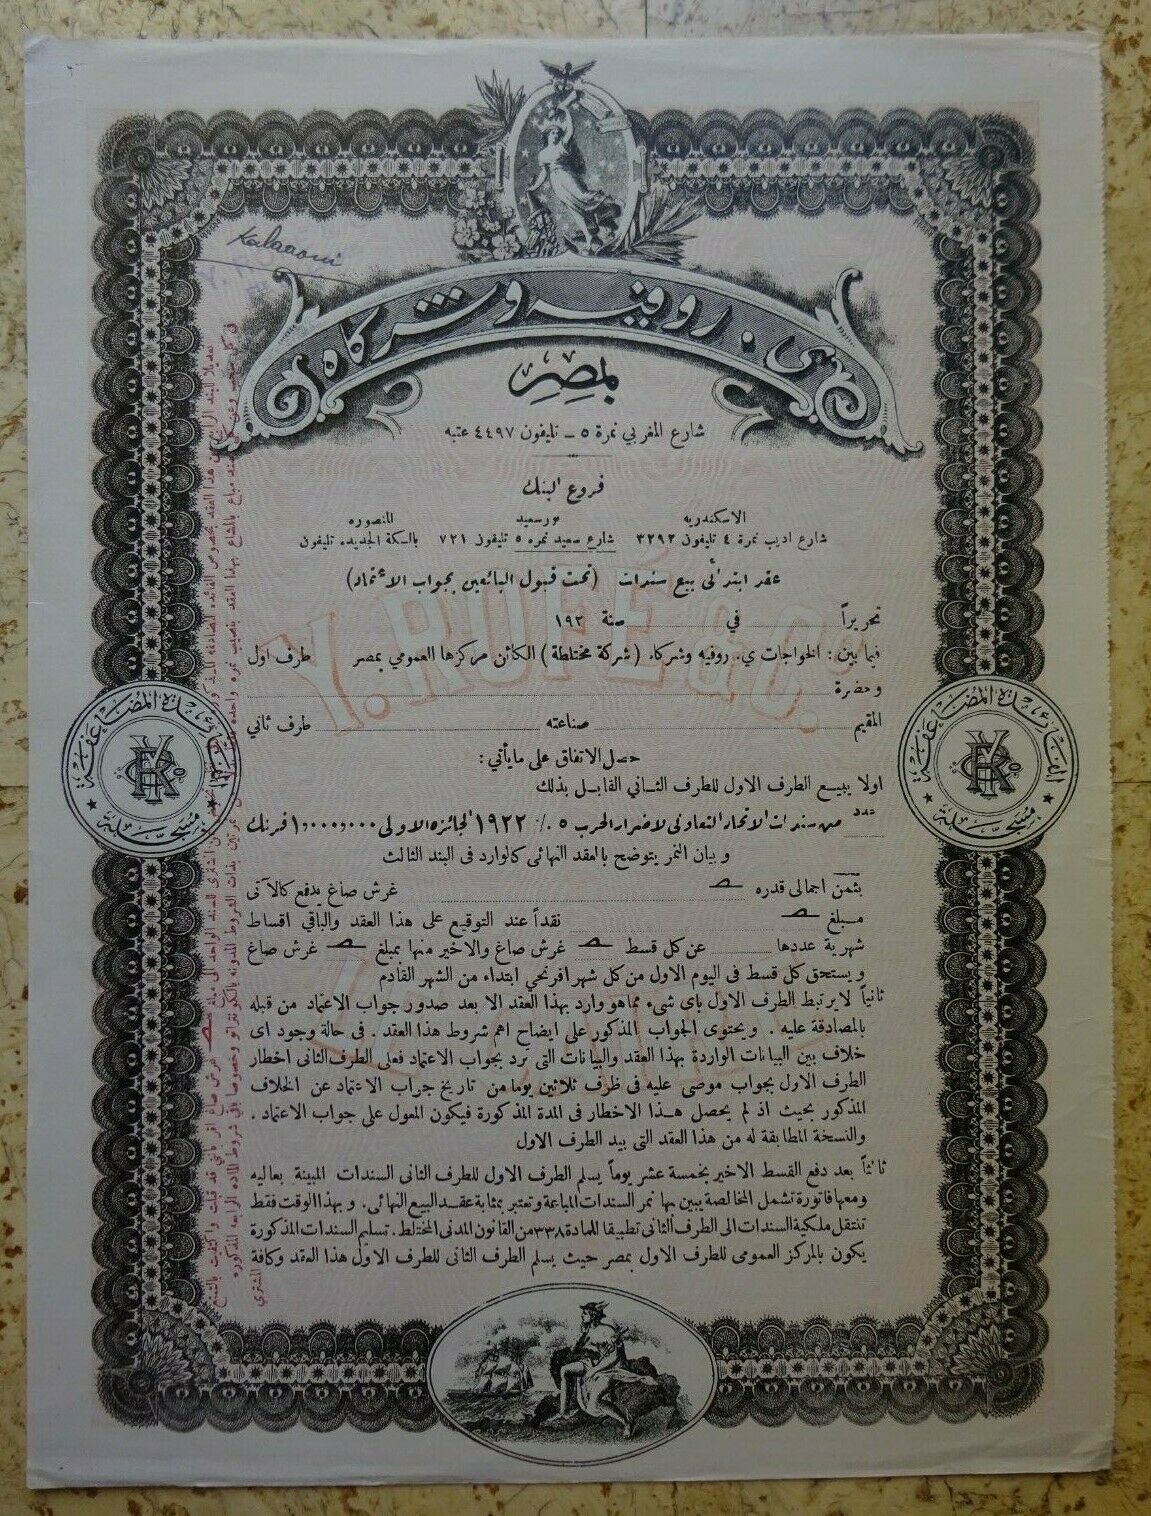 Kalaoui
ى. روفيه وشركاه
بمصر
شارع المغربي نمرة ٥ - تليفون ٤٤٩٧ عتبه
فروع البنك
الاسكندريه
شارع اديب نمرة ٤ تليفون ٣٢٩٢
بورسعيد
شارع سعيد نمره ٥ تليفون ٧٢١
المنصوره
بالسكة الجديده تليفون
عقد ابتدائى ببيع سندات (تحت قبول البائعين بجواب الاعتماد)
تحريراً في سنة ١٩٣
فيما بين: الخواجات ي. روفيه وشركاه (شركة مختلطة) الكائن مركزها العمومي بمصر طرف اول
وحضرة
المقيم صناعته طرف ثاني
حصل الاتفاق على ما يأتي:
اولا يبيع الطرف الاول للطرف الثاني القابل بذلك
عدد من سندات الاتحاد التعاونى لاضرار الحرب ٥ ٪ ١٩٢٢ الجائزه الاولى ١٠٠٠٠٠٠ فرنك
وبيان النمر يتوضح بالعقد النهائى كالوارد فى البند الثالث
بثمن اجمالى قدره غرش صاغ يدفع كالآتى
مبلغ نقداً عند التوقيع على هذا العقد والباقي اقساط
شهرية عددها عن كل قسط غرش صاغ والاخير منها بمبلغ غرش صاغ
ويستحق كل قسط فى اليوم الاول من كل شهر افرنجى ابتداء من الشهر القادم
ثانياً لا يرتبط الطرف الاول باى شىء مما هو وارد بهذا العقد الا بعد صدور جواب الاعتماد من قبله
بالمصادقة عليه. ويحتوى الجواب المذكور على ايضاح اهم شروط هذا العقد. فى حالة وجود اى
خلاف بين البيانات الواردة بهذا العقد والبيانات التى ترد بجواب الاعتماد فعلى الطرف الثانى اخطار
الطرف الاول بجواب موصى عليه فى ظرف ثلاثين يوما من تاريخ جواب الاعتماد عن الخلاف
المذكور بحيث اذ لم يحصل هذا الاخطار فى المدة المذكورة فيكون المعول على جواب الاعتماد.
والنسخة المطابقة له من هذا العقد التى بيد الطرف الاول
ثالثاً بعد دفع القسط الاخير بخمسة عشر يوماً يسلم الطرف الاول للطرف الثانى السندات المبينة بعاليه
ومعها فاتورة تشمل المخالصة يبين بها نمر السندات المباعة وتعتبر بمثابة عقد البيع النهائى. وبهذا الوقت فقط
تنتقل ملكية السندات الى الطرف الثانى تطبيقا للمادة ٣٣٨ من القانون المدنى المختلط. تسليم السندات المذكورة
يكون بالمركز العمومى للطرف الاول بمصر حيث يسلم الطرف الثانى للطرف الاول هذا العقد وكافة
Y. ROFÉ & Co.